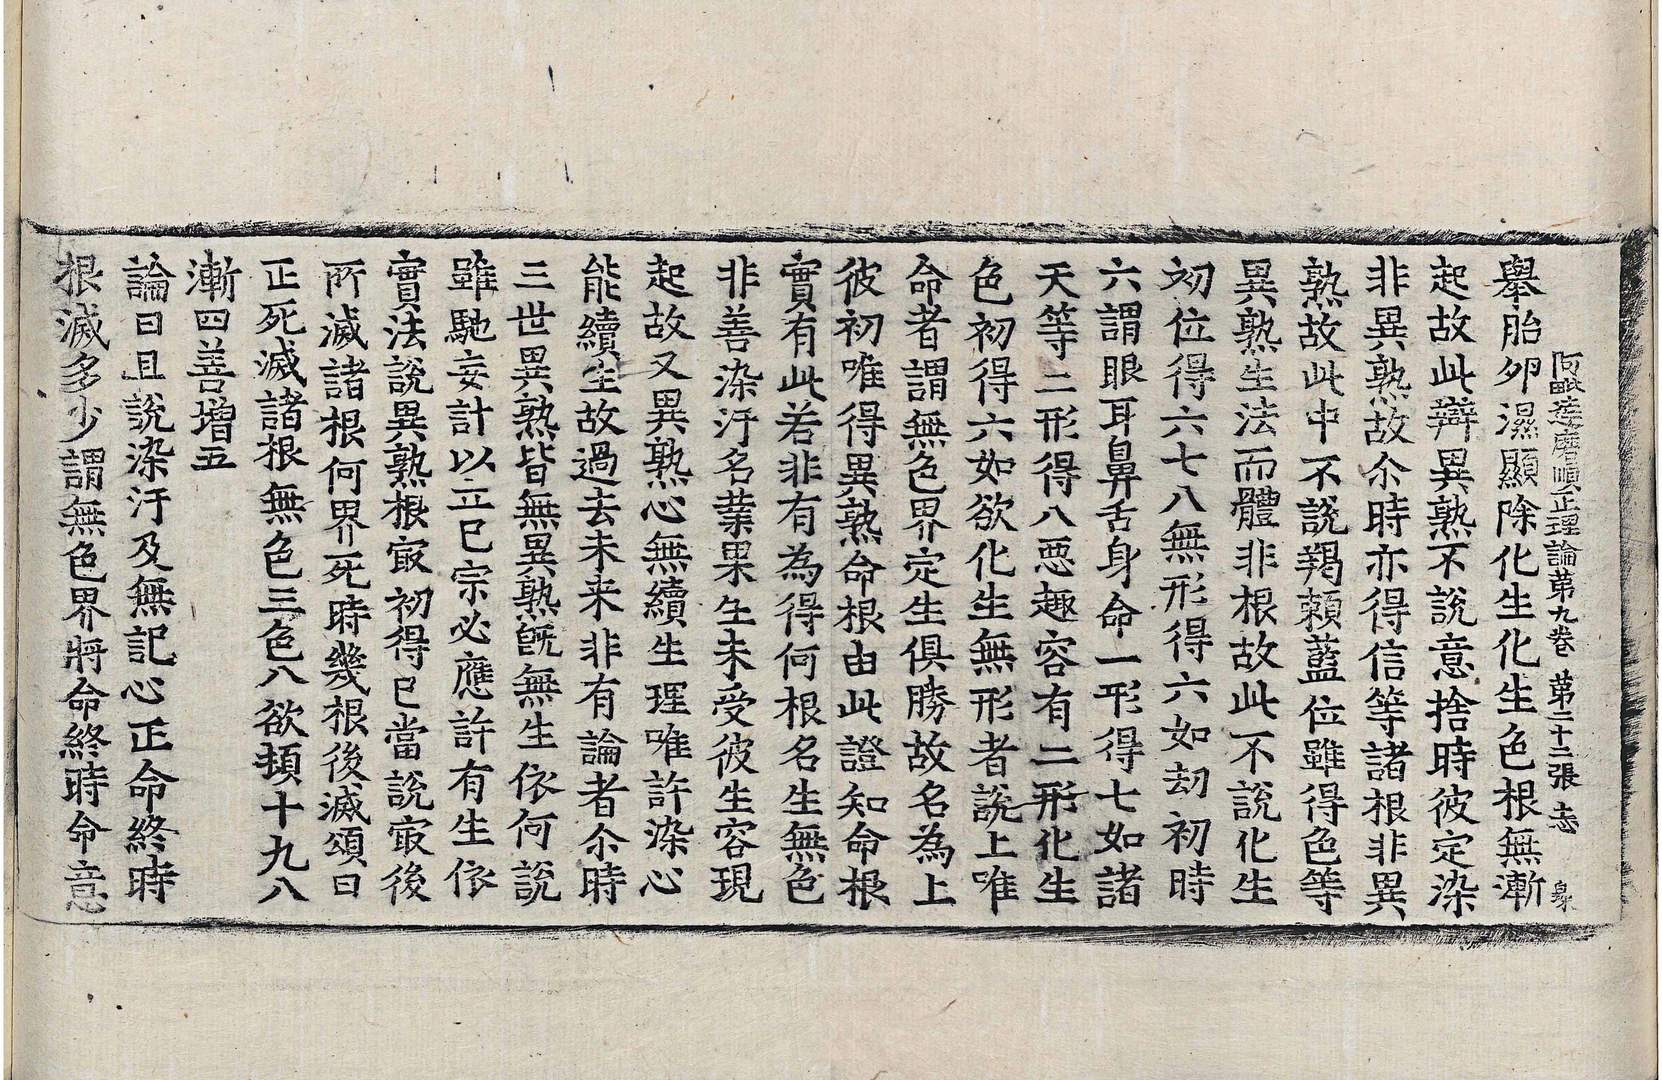 阿毗達磨順正理論苐九卷　苐二十二張　志
舉胎夘濕顯除化生化生色根無漸
起故此辯異熟不說意捨時彼定染
非異熟故尒時亦得信等諸根非異
熟故此中不說羯頼藍位雖得色等
異熟生法而體非根故此不說化生
初位得六七八無形得六如劫初時
六謂眼耳鼻舌身命一形得七如諸
天等二形得八惡趣容有二形化生
色初得六如欲化生無形者說上唯
命者謂無色界定生俱勝故名為上
彼初唯得異熟命根由此證知命根
實有此若非有為得何根名生無色
非善染汙名業果生未受彼生容現
起故又異熟心無續生理唯許染心
能續生故過去未来非有論者尒時
三世異熟皆無異熟旣無生依何說
雖馳妄計以立已宗必應許有生依
實法說異熟根㝡初得已當說㝡後
所滅諸根何界死時幾根後滅頌曰
正死滅諸根無色三色八欲頓十九八
漸四善增五
論曰且說染汙及無記心正命終時
根滅多少謂無色界將命終時命意